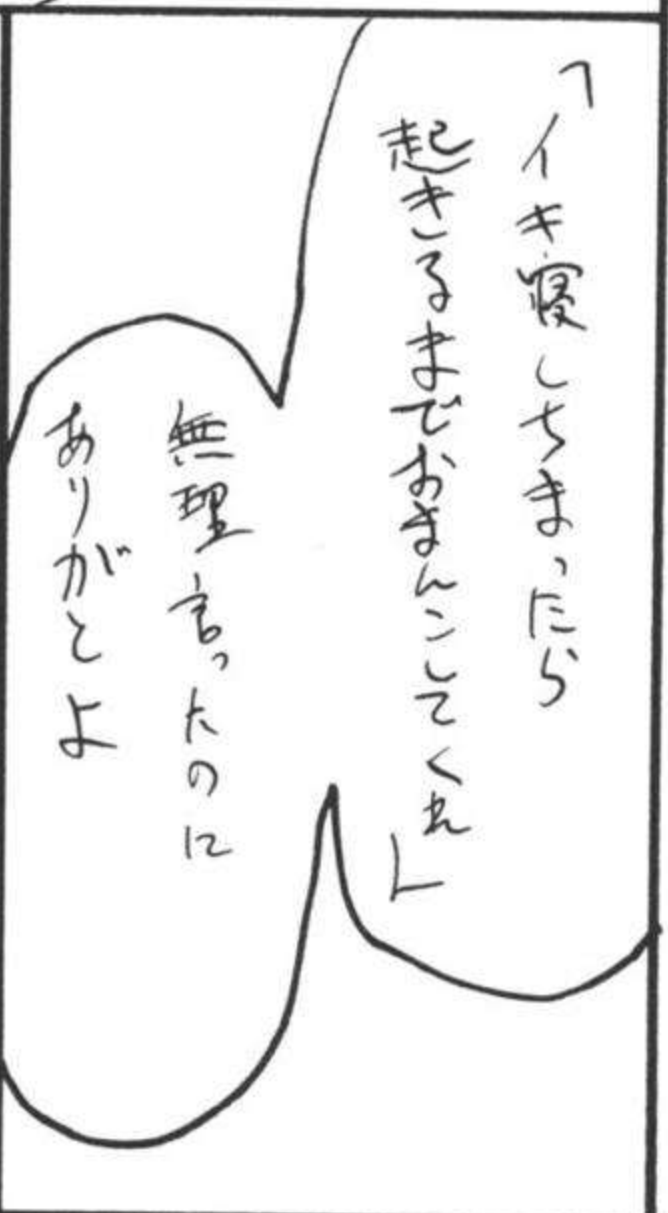 「イキ寝しちまったら
起きるまでおまんこしてくれ」
無理言ったのに
ありがとよ